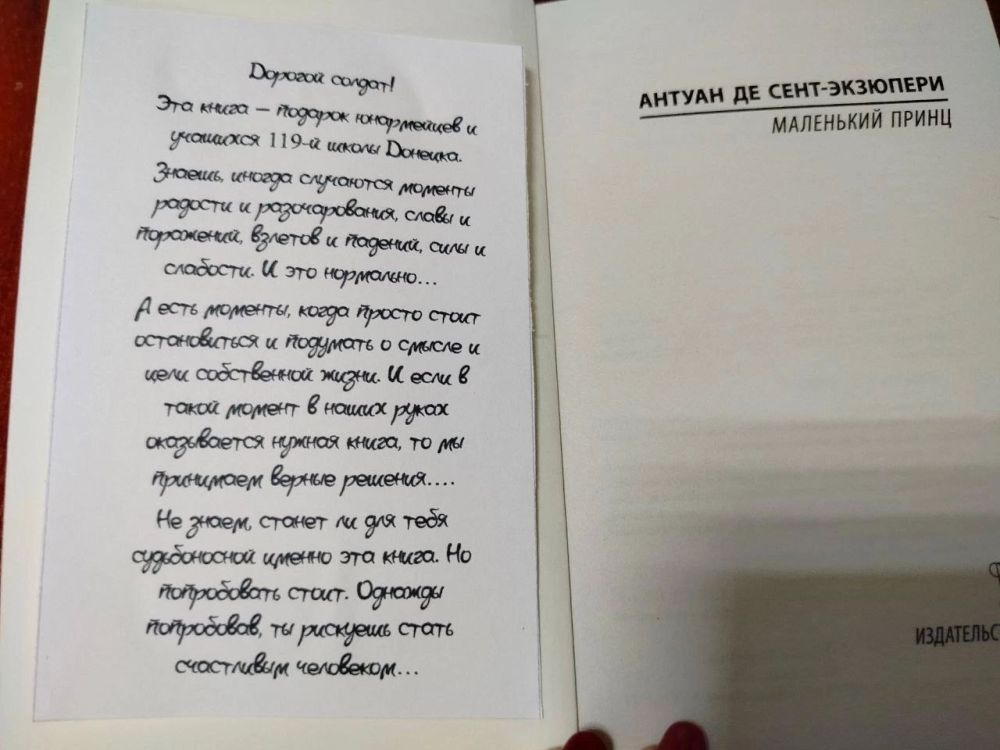 Дорогой солдат!
Эта книга – подарок юнармейцев и
учащихся 119-й школы Донецка.
Знаешь, иногда случаются моменты
радости и разочарования, славы и
поражений, взлетов и падений, силы и
слабости. И это нормально...
А есть моменты, когда просто стоит
остановиться и подумать о смысле и
цели собственной жизни. И если в
такой момент в наших руках
оказывается нужная книга, то мы
принимаем верные решения....
Не знаем, станет ли для тебя
судьбоносной именно эта книга. Но
попробовать стоит. Однажды
попробовав, ты рискуешь стать
счастливым человеком...
АНТУАН ДЕ СЕНТ-ЭКЗЮПЕРИ
МАЛЕНЬКИЙ ПРИНЦ